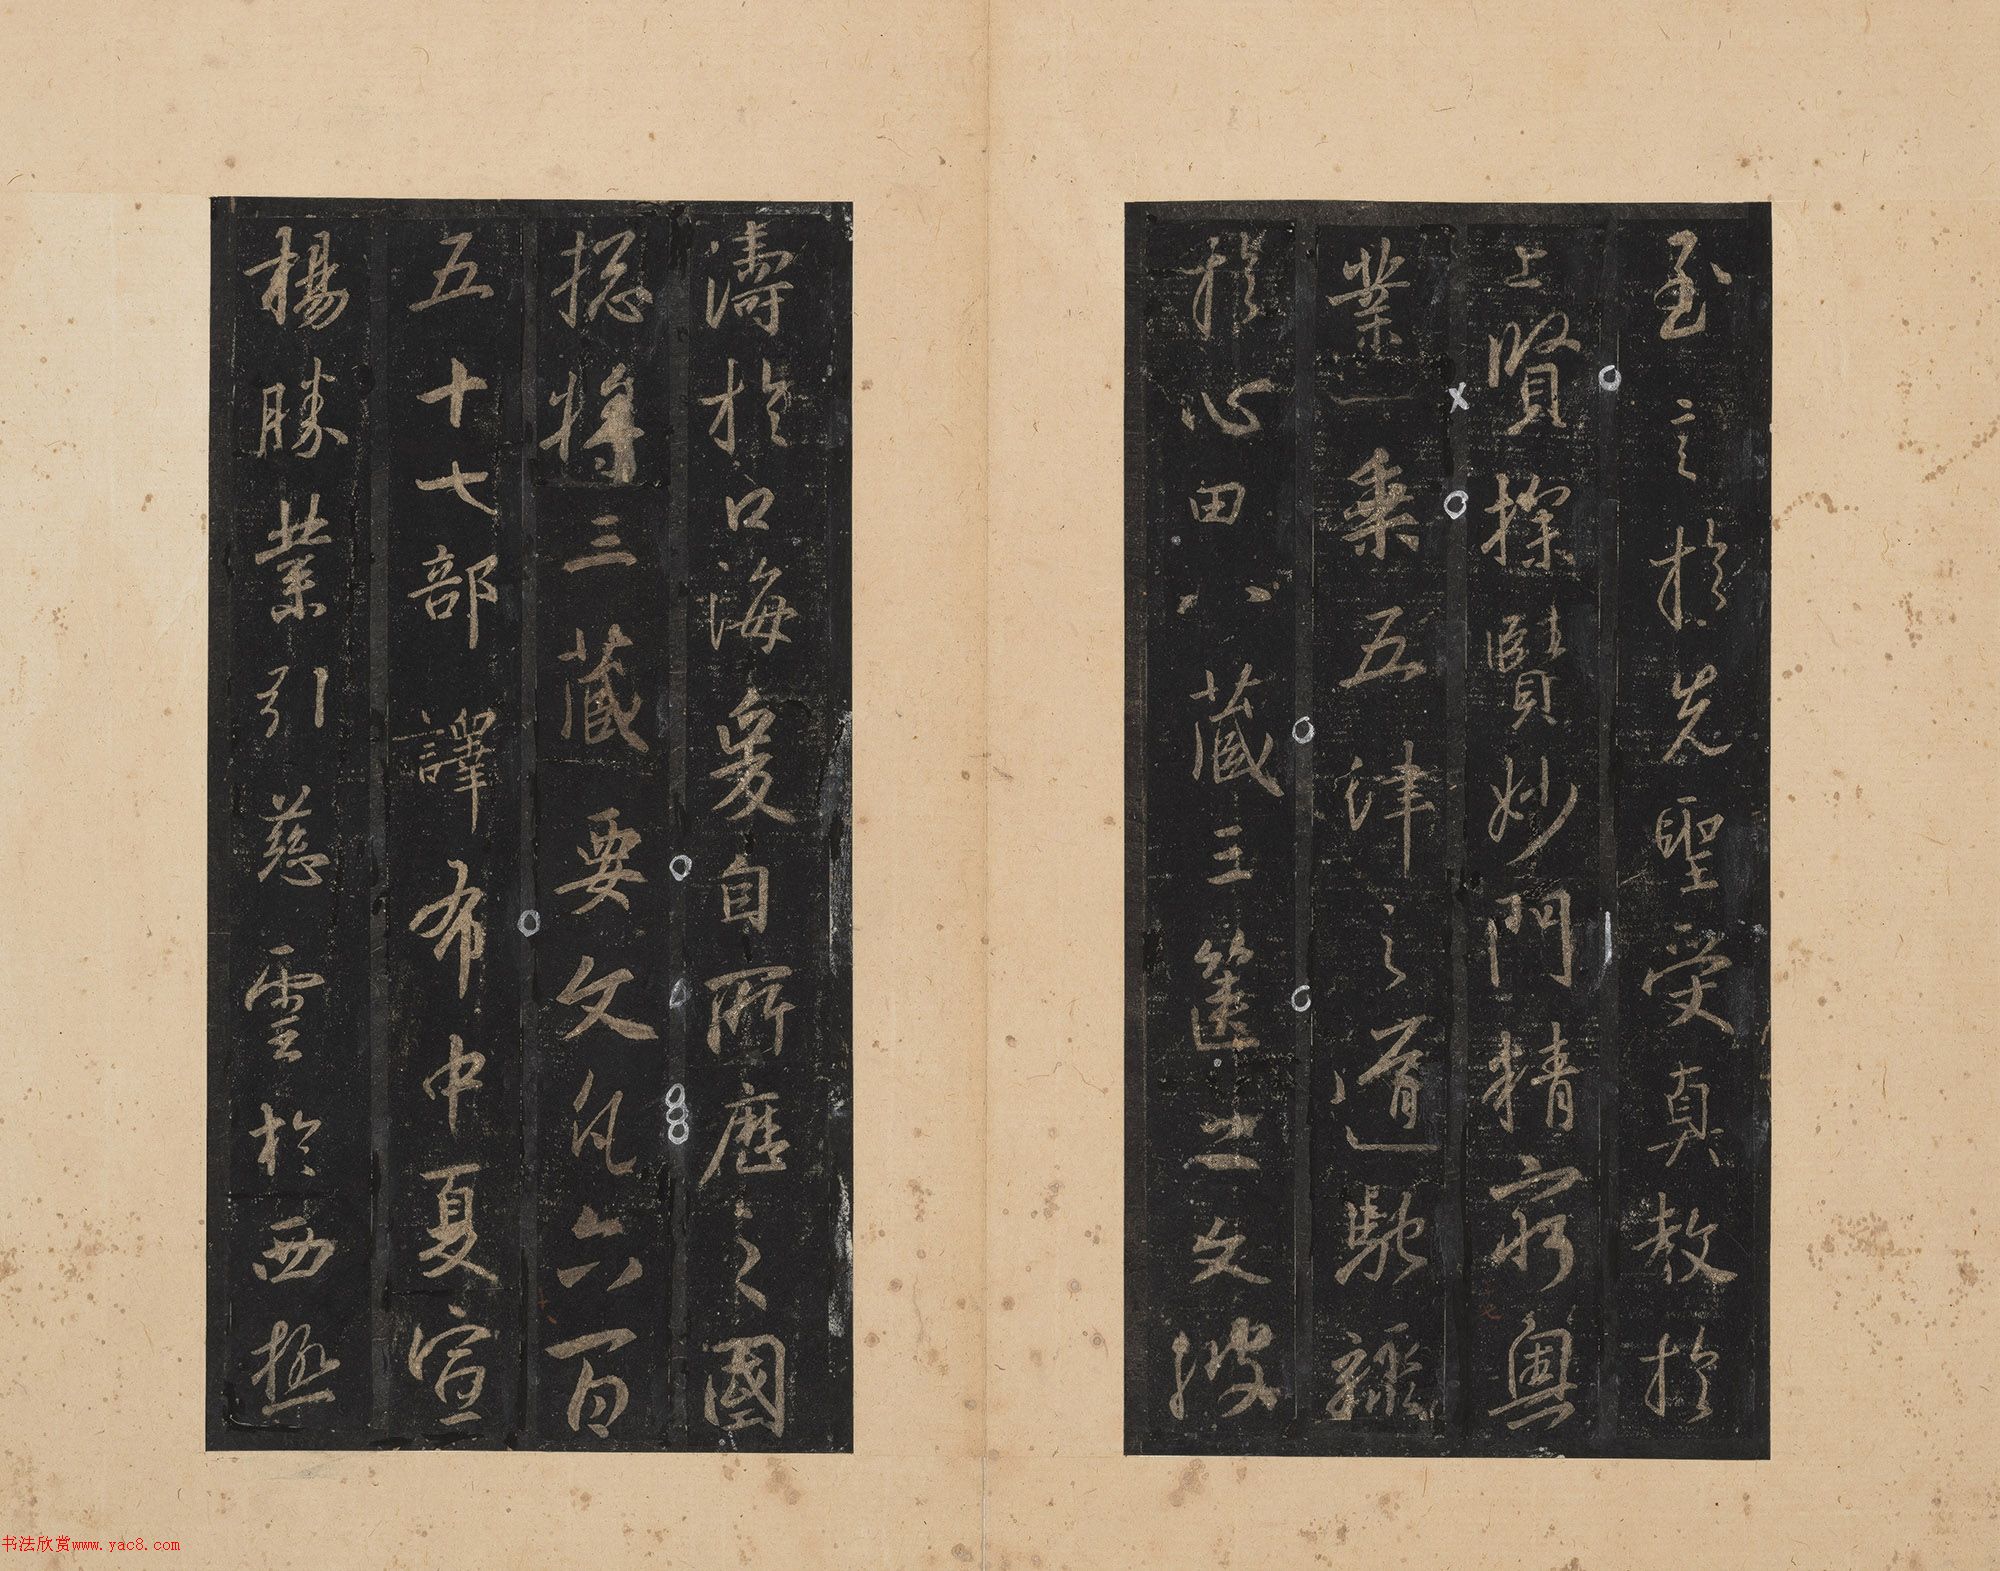 至言於先聖受真教於
上賢探賾妙門精窮奧
業一乘五律之道馳驟
於心田八藏三篋之文波
濤於口海爰自所歷之國
捴將三藏要文凡六百
五十七部譯布中夏宣
楊勝業引慈雲於西極
书法欣赏www.yac8.com